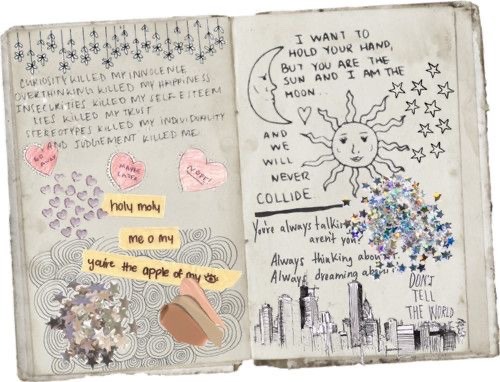 CURIOSITY KILLED MY INNOCENCE
OVERTHINKING KILLED MY HAPPINESS
INSECURITIES KILLED MY SELF ESTEEM
LIES KILLED MY TRUST
STEREOTYPES KILLED MY INDIVIDUALITY
AND JUDGEMENT KILLED ME.
GO AWAY
MAYBE LATER
NOPE!
holy moly
me o my
you're the apple of my
I WANT TO
HOLD YOUR HAND,
BUT YOU ARE THE
SUN AND I AM THE
MOON...
AND
WE
WILL
NEVER
COLLIDE
You're always talking
aren't you
Always thinking about
Always dreaming about
DON'T
TELL
THE WORLD